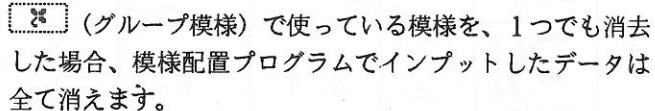 (グループ模様)で使っている模様を、1つでも消去
した場合、模様配置プログラムでインプットしたデータは
全て消えます。